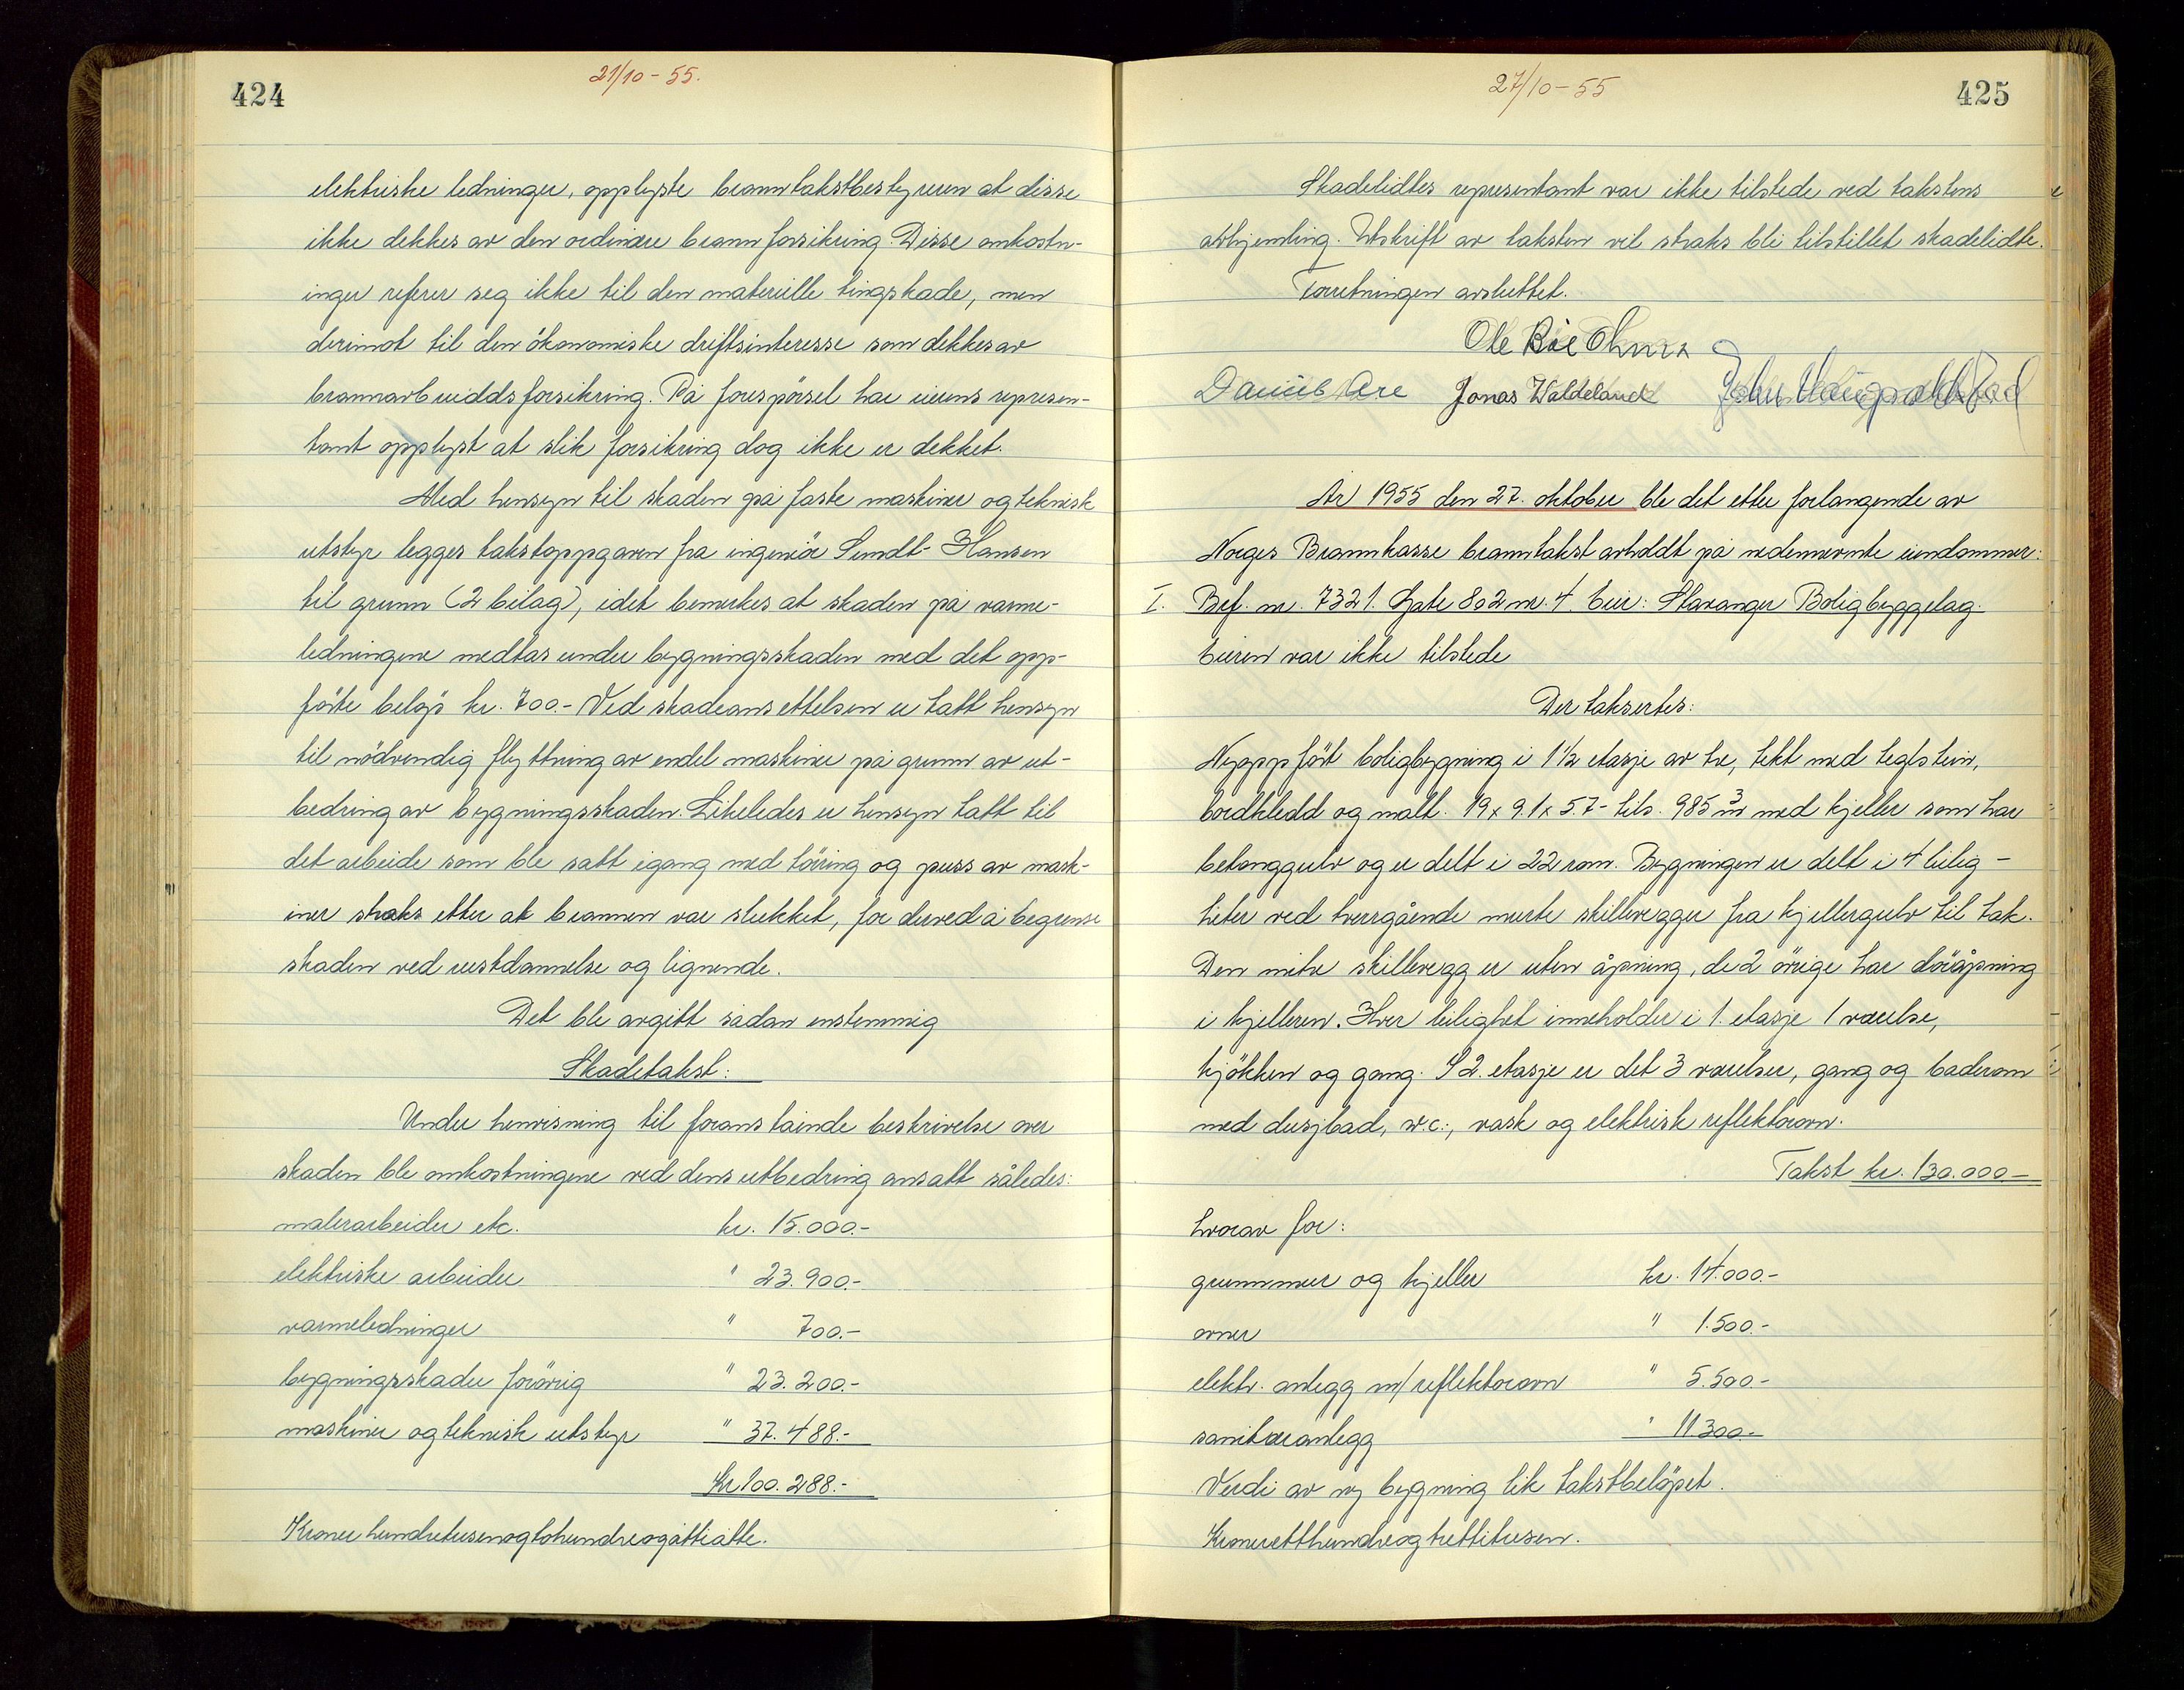 424
21/10-55.
elektriske ledninger, opplyste branntakstbestyreren at disse
ikke dekkes av den ordinære brannforsikring. Disse omkostn-
inger referer seg ikke til den materielle tingskade, men
derimot til den økonomiske driftsinteresse som dekkes av
brannavbruddsforsikring. På forespørsel har eierens represen-
tant opplyst at slik forsikring dog ikke er dekket.
Med hensyn til skaden på faste maskiner og teknisk
utstyr legges takstoppgaven fra ingeniør Sundt-Hansen
til grunn (2 bilag), idet bemerkes at skaden på varme-
ledningene medtas under bygningsskaden med det opp-
førte beløp kr. 700.- Ved skadeansettelsen er tatt hensyn
til nødvendig flyttning av endel maskiner på grunn av ut-
bedring av bygningsskaden. Likeledes er hensyn tatt til
det arbeide som ble satt igang med tøring og puss av mask-
iner straks etter at brannen var slukket, for derved å begrense
skaden ved rustdannelse og lignende.
Det ble avgitt sådan enstemmig
Skadetakst:
Under henvisning til foranstående beskrivelse over
skaden ble omkostningene ved dens utbedring ansatt således:
malerarbeider etc. kr. 15.000.-
elektriske arbeider " 23.900.-
varmeledninger " 700.-
bygningsskader forøvrig " 23.200.-
maskiner og teknisk utstyr " 37.488.-
Kr 100.288.-
Kroner hundretusenogtohundreogåttiåtte.
27/10-55
425
Skadelidtes representant var ikke tilstede ved takstens
avhjemling. Utskrift av taksten vil straks bli tilstillet skadelidte.
Forretningen avsluttet.
Ole Bøe
Daniel Are Jonas Waldeland John
År 1955 den 27. oktober ble det etter forlangende av
Norges Brannkasse branntakst avholdt på nedennevnte eiendommer:
I. Bef. nr. 7321. Gate 802 nr. 4. Eier: Stavanger Boligbyggelag.
Eieren var ikke tilstede
Der taksertes:
Nyoppført boligbygning i 1½ etasje av tre, tekt med teglstein,
bordkledd og malt. 19 x 9.1 x 5.7 - tils. 985 m³ med kjeller som har
betonggulv og er delt i 22 rom. Bygningen er delt i 4 leilig-
heter ved tverrgående murte skillevegger fra kjellergulv til tak.
Den mitre skillevegg er uten åpning, de 2 øvrige har døråpning
i kjelleren. Hver leilighet inneholder i 1. etasje 1 værelse,
kjøkken og gang. I 2. etasje er det 3 værelser, gang og baderom
med dusjbad, w.c., vask og elektrisk reflektorovn.
Takst kr. 130.000-
hvorav for:
grunnmur og kjeller kr. 14.000.-
ovner " 1.500.-
elektr. anlegg m/reflektorovn " 5.500.-
sanitæranlegg " 11300.-
Verdi av ny bygning lik takstbeløpet.
Kroneretthundreogtrettitusen.